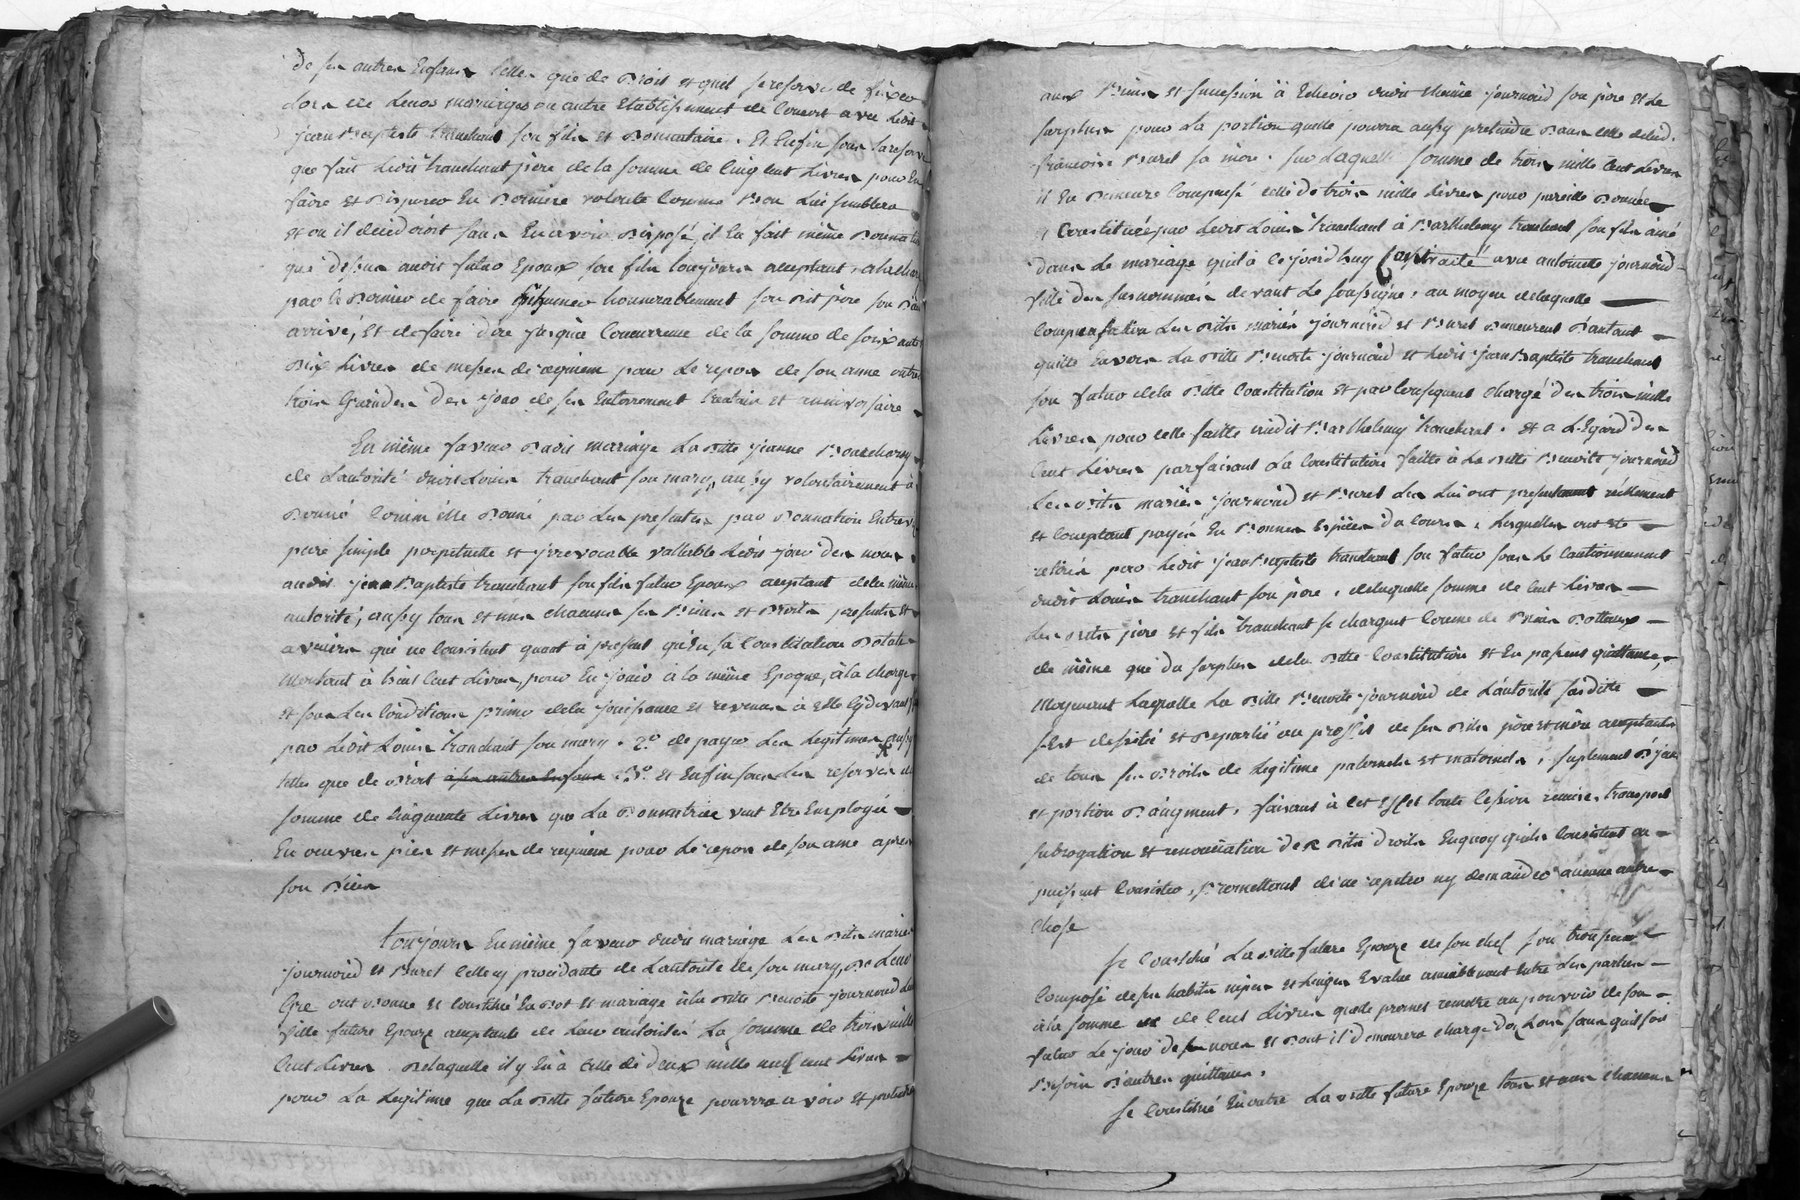 de ses autres Enfans telles que de Droit et quel se reserve de fixer
Lors de Leurs mariages ou autre Etablissement de Concert avec Ledit
jean Baptiste tranchant son fils et Donnataire. Et Enfin sous la reserve
que fait Ledit tranchant père de la somme de Cinq Cent Livres pour En
faire et Disposer En Dernière volonté Comme Bon Lui semblera
et ou il decederoit sans En avoir Disposé, il En fait même Donnation
que dessus audit futur Epoux son fils toujours acceptant, a la charge
par le Dernier de faire honnorablement son Dit père son Décès
arrivé, Et de faire dire jusqu'à Concurrence de la somme de soixante
Dix Livres de messes de requiem pour Le repos de son ame outre
trois Grandes des jour de ses Enterrement Quarantain et anniversaire
En même faveur Dudit mariage La Ditte jeanne
de L'autorité dudit Louis tranchant son mary, aussy volontairement à
Donné Comm'elle Donne par Les presentes par Donnation Entrevifs
pure simple perpetuelle et jrrevocable vallable Ledit jour des noces
audit jean Baptiste tranchant son fils futur Epoux acceptant de la même
autorité, aussy tous et uns chacuns ses Biens et Droits presents et
avenirs qui ne Consistent quant à present qu'En sa Constitution Dotale
Montant à huit Cent Livres, pour En jouir à la même Epoque, à la charge
et sous Les Conditions primo de la jouissance et revenus à Elle cydevant
par Ledit Louis tranchant son mary. 2°. de payer Les Legitimes aussy
telles que de Droit à ses autres Enfans. 3°. et Enfin sous La reserve de
somme de Cinquante Livres que La Donnatrice veut Etre Employée
En oeuvres pies et messes de requiem pour Le repos de son ame après
son Décès
toujours En même faveur dudit mariage Les Dits mariés
journoud et Buret Cette cy procédante de L'autorité de son mary, De Leur
Gré ont Donné Et Constitué En Dot et mariage à la Ditte Benoite journoud Leur
fille future Epouze acceptante de Leur autorité La somme de trois mille
Cent Livres Delaquelle il y En à Celle de deux mille neuf cent Livres
pour La Legitime que La Ditte future Epouze pourra avoir et pretendre
aux Biens et succession à Echeoir dudit Etienne journoud son père et Le
surplus pour La portion quelle pourra aussy pretendre Dans celle de lad.
françoise Buret sa mère. sur Laquelle somme de trois mille Cent Livres
il En Demeure Compensé celle de trois mille Livres pour pareille Donnée
et Constituée par Ledit Louis tranchant à Barthelemy tranchant son fils ainé
dans Le mariage quil à cejourdhuy Contracté avec antoinette journoud
fille des susnommés devant Le soussigné, au moyen delaquelle
Compensation Les Dits mariés journoud et Buret Demeurent D'autant
quitte Envers La Ditte Benoite journoud et Ledit jean Baptiste tranchant
son futur de la Ditte Constitution et par Consequent chargé des trois mille
Livres pour Celle faitte audit Barthelemy tranchant. Et a L'Egard des
Cent Livres parfaisant La Constitution faitte à La Ditte Benoite journoud
Les Dits mariés journoud et Buret Les Lui ont presentement réellement
et Comptant payés En Bonnes Espèces de Cours, Lesquelles ont été
retirés par Ledit jean Baptiste tranchant son futur sous Le Cautionnement
dudit Louis tranchant son père, delaquelle somme de Cent Livres
Les Dits père et fils tranchant se chargent Comme de Biens Dottaux
de même que du surplus de la Ditte Constitution et En passent quittance,
Moyennant Laquelle La Ditte Benoite journoud de L'autorité susditte
s'Est desisté et Departie au proffit de ses Dits père et mère acceptants
de tous ses Droits de Legitime paternels et maternels, suplement D'jcelle
et portion D'augment, faisant à Cet Effet toute Cession remise, transport
subrogation et renonciation de ses Dits droits Enquoy quils Consistent ou
puissent Consister, Promettant de ne repeter ny demander aucune autre
chose
se Constitué La ditte future Epouze de son chef son trousseau
Composé de ses habits nipes et Linges Evalué amiablement Entre Les parties
à la somme de Cent Livres quelle promet remettre au pouvoir de son
futur Le jour des noces Et Dont il demeurera chargé dez Lors sans quil soit
Besoin D'autres quittances.
Se Constitué En outre La ditte future Epouze tous et uns chacuns